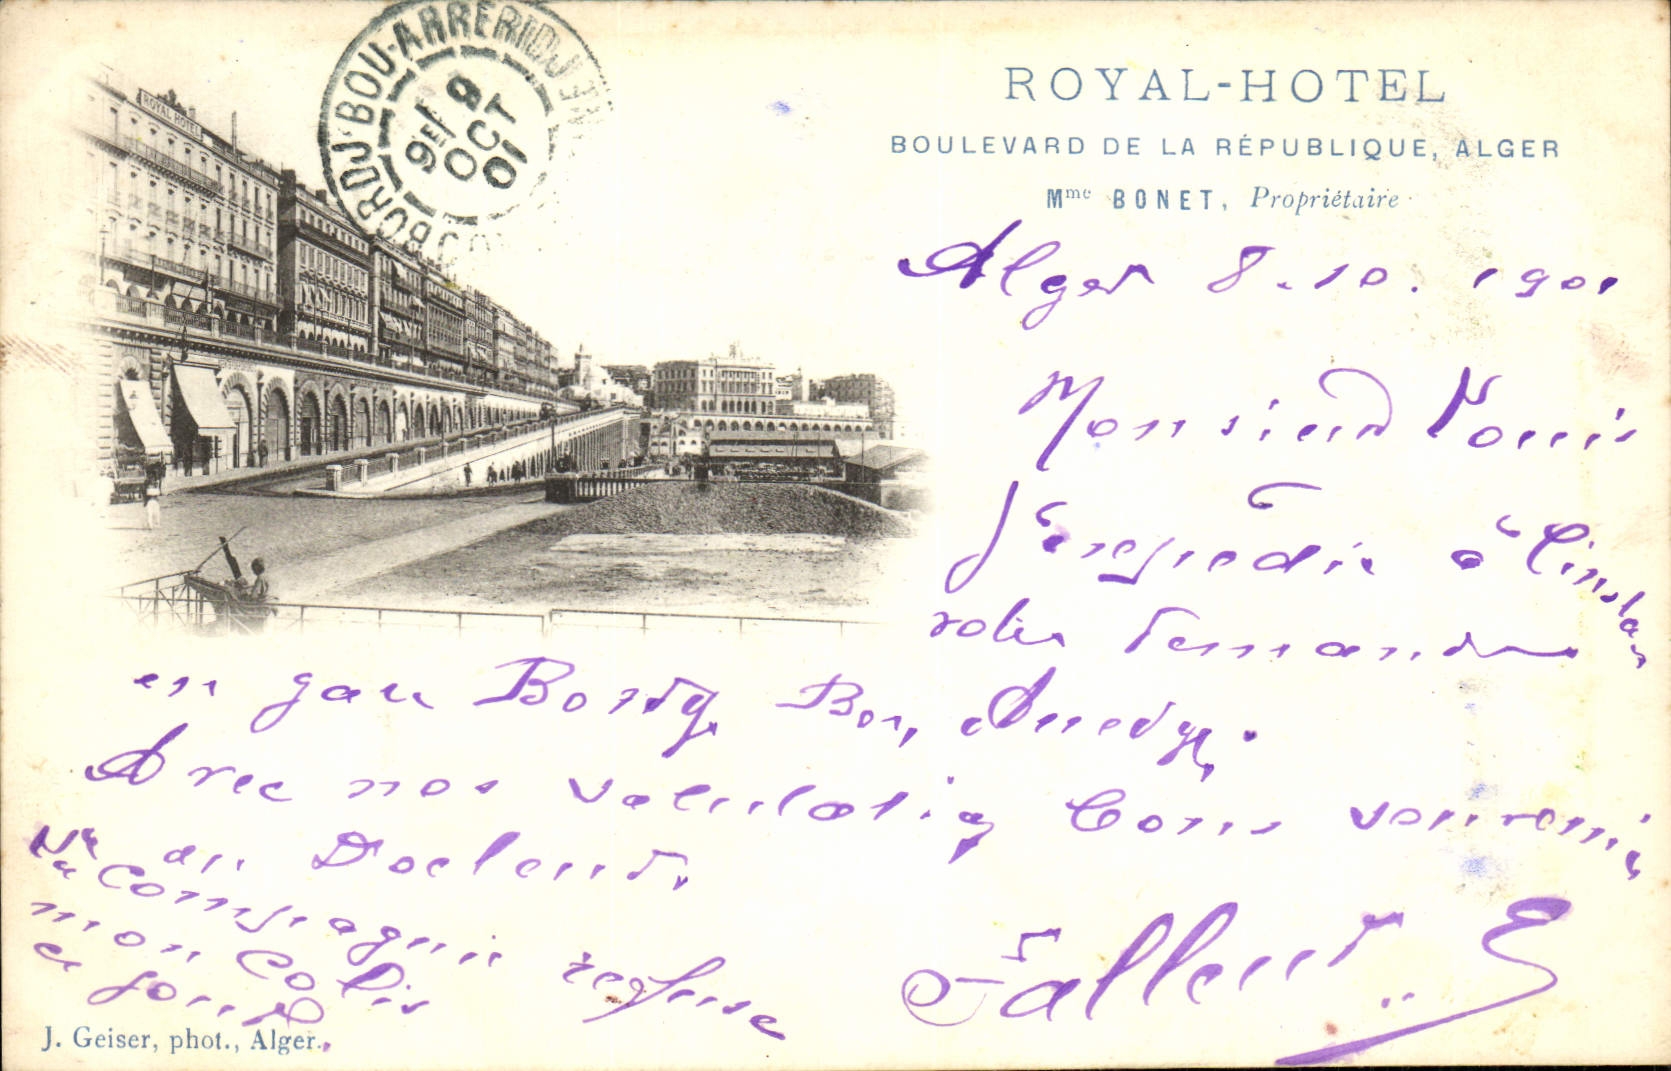 ROYAL-HOTEL
BOULEVARD DE LA RÉPUBLIQUE, ALGER
Mme BONET, Propriétaire
BORDJ-BOU-ARRERIDJ
9E/ 9
OCT
01
ROYAL HOTEL
Alger 8.10.1901
Monsieur Louis
J'expédie à l'instan
votre demande
en gare Bordj Bou,
Avec nos bons souvenirs
au
La compagnie refuse
mon colis
ce jour
Fallent E
J. Geiser, phot., Alger.